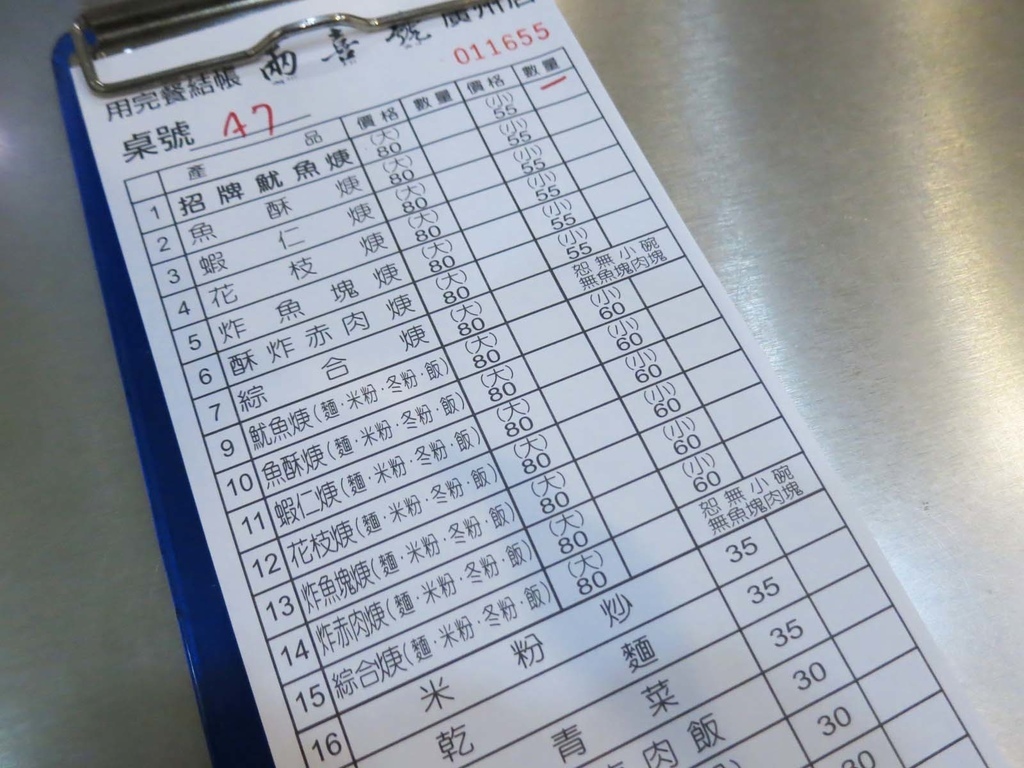 兩喜號 廣州店
用完餐結帳 011655
桌號 A7
產品 價格 數量 價格 數量
1 招牌魷魚焿 (大)80 (小)55 一
2 魚酥焿 (大)80 (小)55
3 蝦仁焿 (大)80 (小)55
4 花枝焿 (大)80 (小)55
5 炸魚塊焿 (大)80 (小)55
6 酥炸赤肉焿 (大)80 (小)55
7 綜合焿 (大)80 恕無小碗 無魚塊肉塊
9 魷魚焿(麵·米粉·冬粉·飯) (大)80 (小)60
10 魚酥焿(麵·米粉·冬粉·飯) (大)80 (小)60
11 蝦仁焿(麵·米粉·冬粉·飯) (大)80 (小)60
12 花枝焿(麵·米粉·冬粉·飯) (大)80 (小)60
13 炸魚塊焿(麵·米粉·冬粉·飯) (大)80 (小)60
14 炸赤肉焿(麵·米粉·冬粉·飯) (大)80 (小)60
15 綜合焿(麵·米粉·冬粉·飯) (大)80 恕無小碗 無魚塊肉塊
16 米粉炒 35
乾麵 35
青菜 35
肉飯 30
30